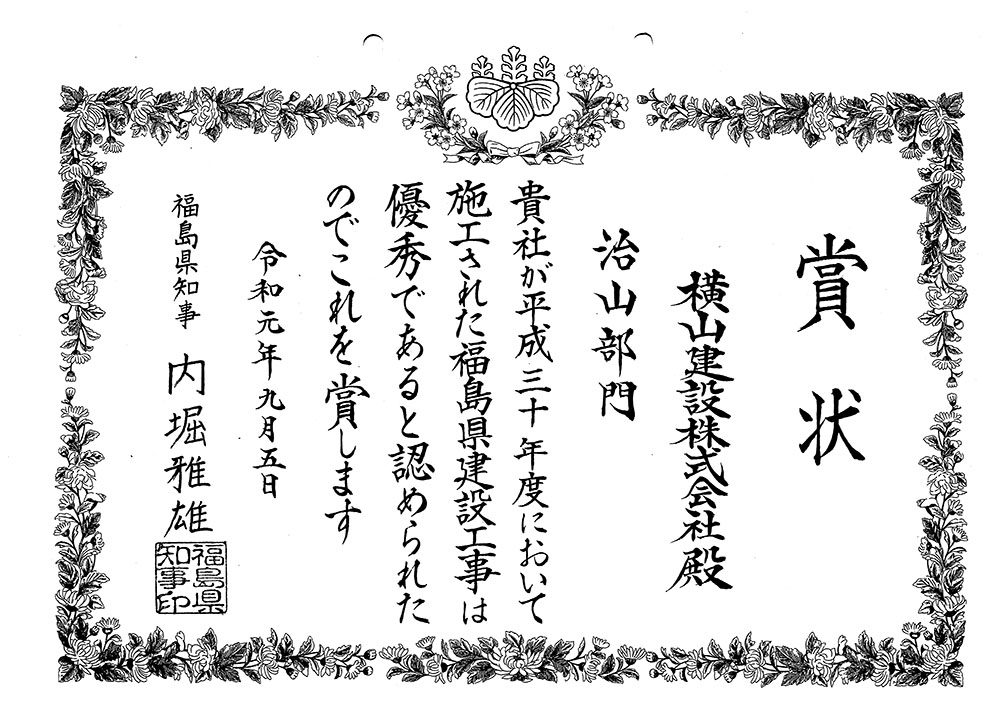 賞状
横山建設株式会社殿
治山部門
貴社が平成三十年度において
施工された福島県建設工事は
優秀であると認められた
のでこれを賞します
令和元年九月五日
福島県知事 内堀雅雄
福島県
知事印